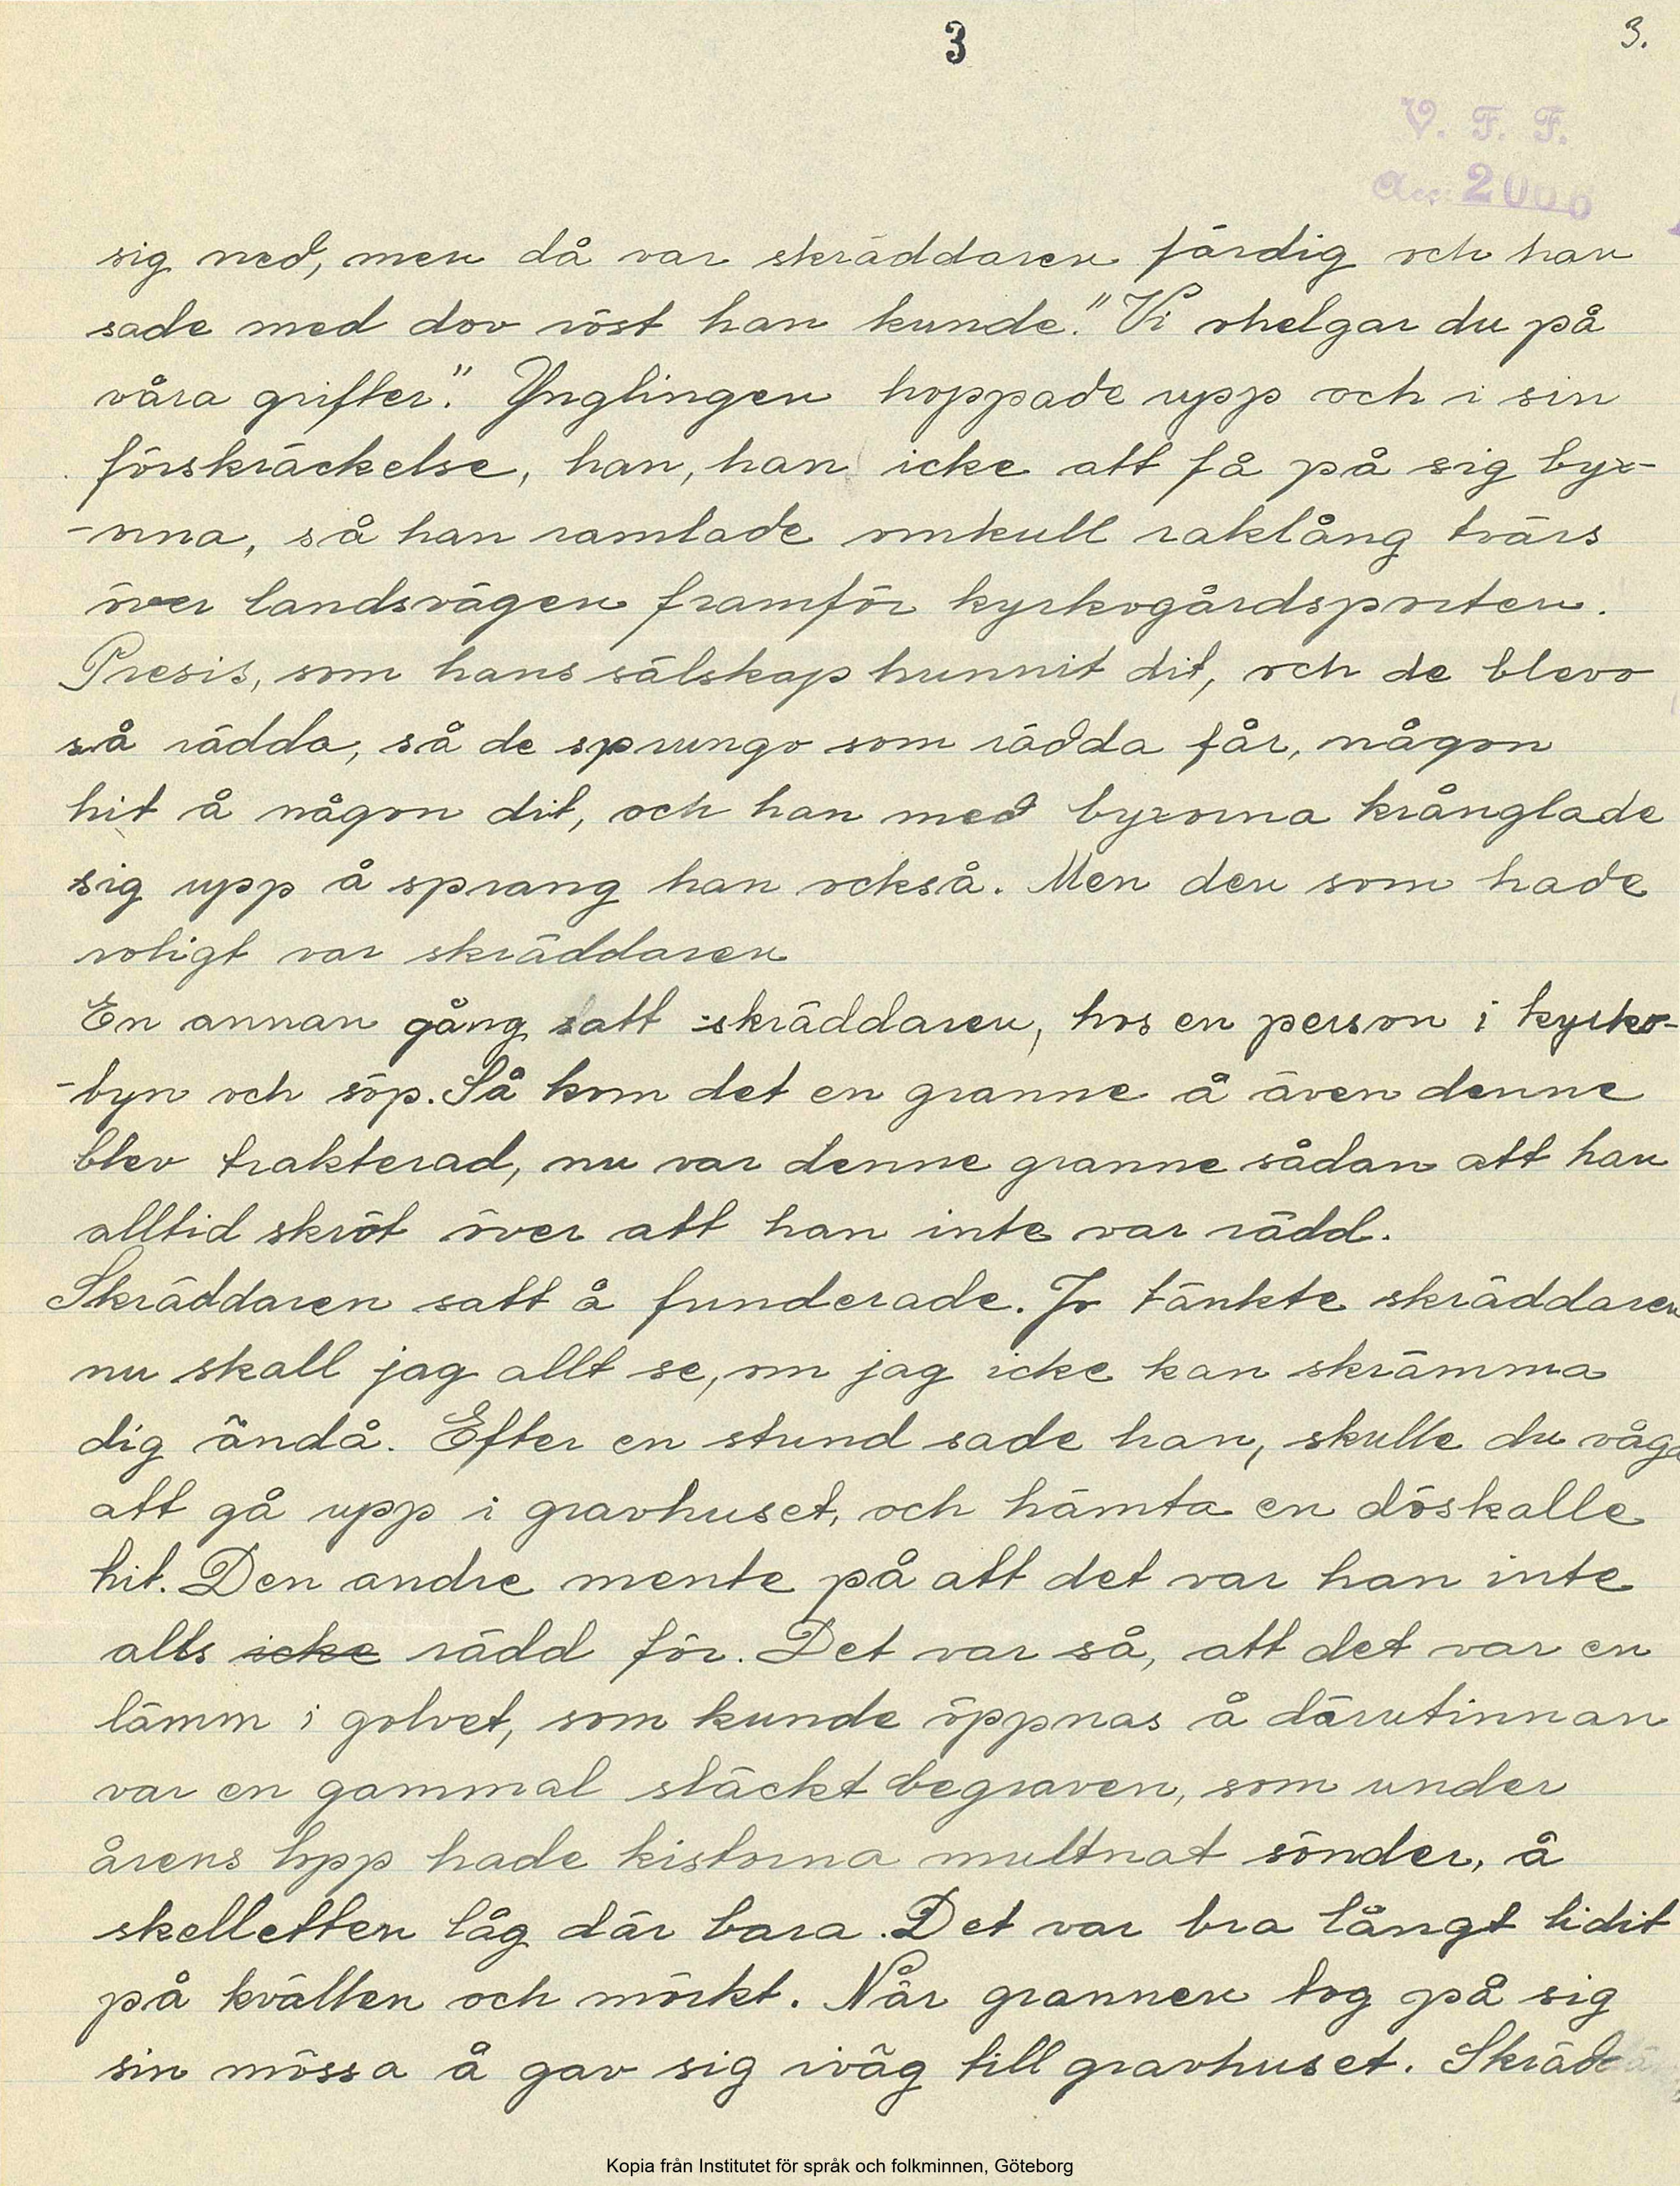 3
3.
V. F. F.
Acc. 2000
sig ned, men då var skräddaren färdig och han
sade med dov röst han kunde." Vi ohelgar du på
våra grifter". Ynglingen hoppade upp och i sin
förskräckelse, han, han icke att få på sig byx-
-orna, så han ramlade omkull raklång tvärs
över landsvägen framför kyrkogårdsporten.
Presis, som hans sälskap hunnit dit, och de blevo
så rädda, så de sprungo som rädda får, någon
hit å någon dit, och han med byxorna krånglade
sig upp å sprang han också. Men den som hade
roligt var skräddaren
En annan gång satt skräddaren, hos en person i kyrko-
-byn och söp. Så kom det en granne å även denne
blev trakterad, nu var denne granne sådan att han
alltid skröt över att han inte var rädd.
Skräddaren satt å funderade. Jo tänkte skräddaren
nu skall jag allt se, om jag icke kan skrämma
dig ändå. Efter en stund sade han, skulle du våga
att gå upp i gravhuset, och hämta en döskalle
hit. Den andre mente på att det var han inte
alls icke rädd för. Det var så, att det var en
lämm i golvet, som kunde öppnas å därutinnan
var en gammal släckt begraven, som under
årens lopp hade kistorna multnat sönder, å
skelletten låg där bara. Det var bra långt lidit
på kvällen och mörkt. När grannen tog på sig
sin mössa å gav sig iväg till gravhuset. Skräd
Kopia från Institutet för språk och folkminnen, Göteborg